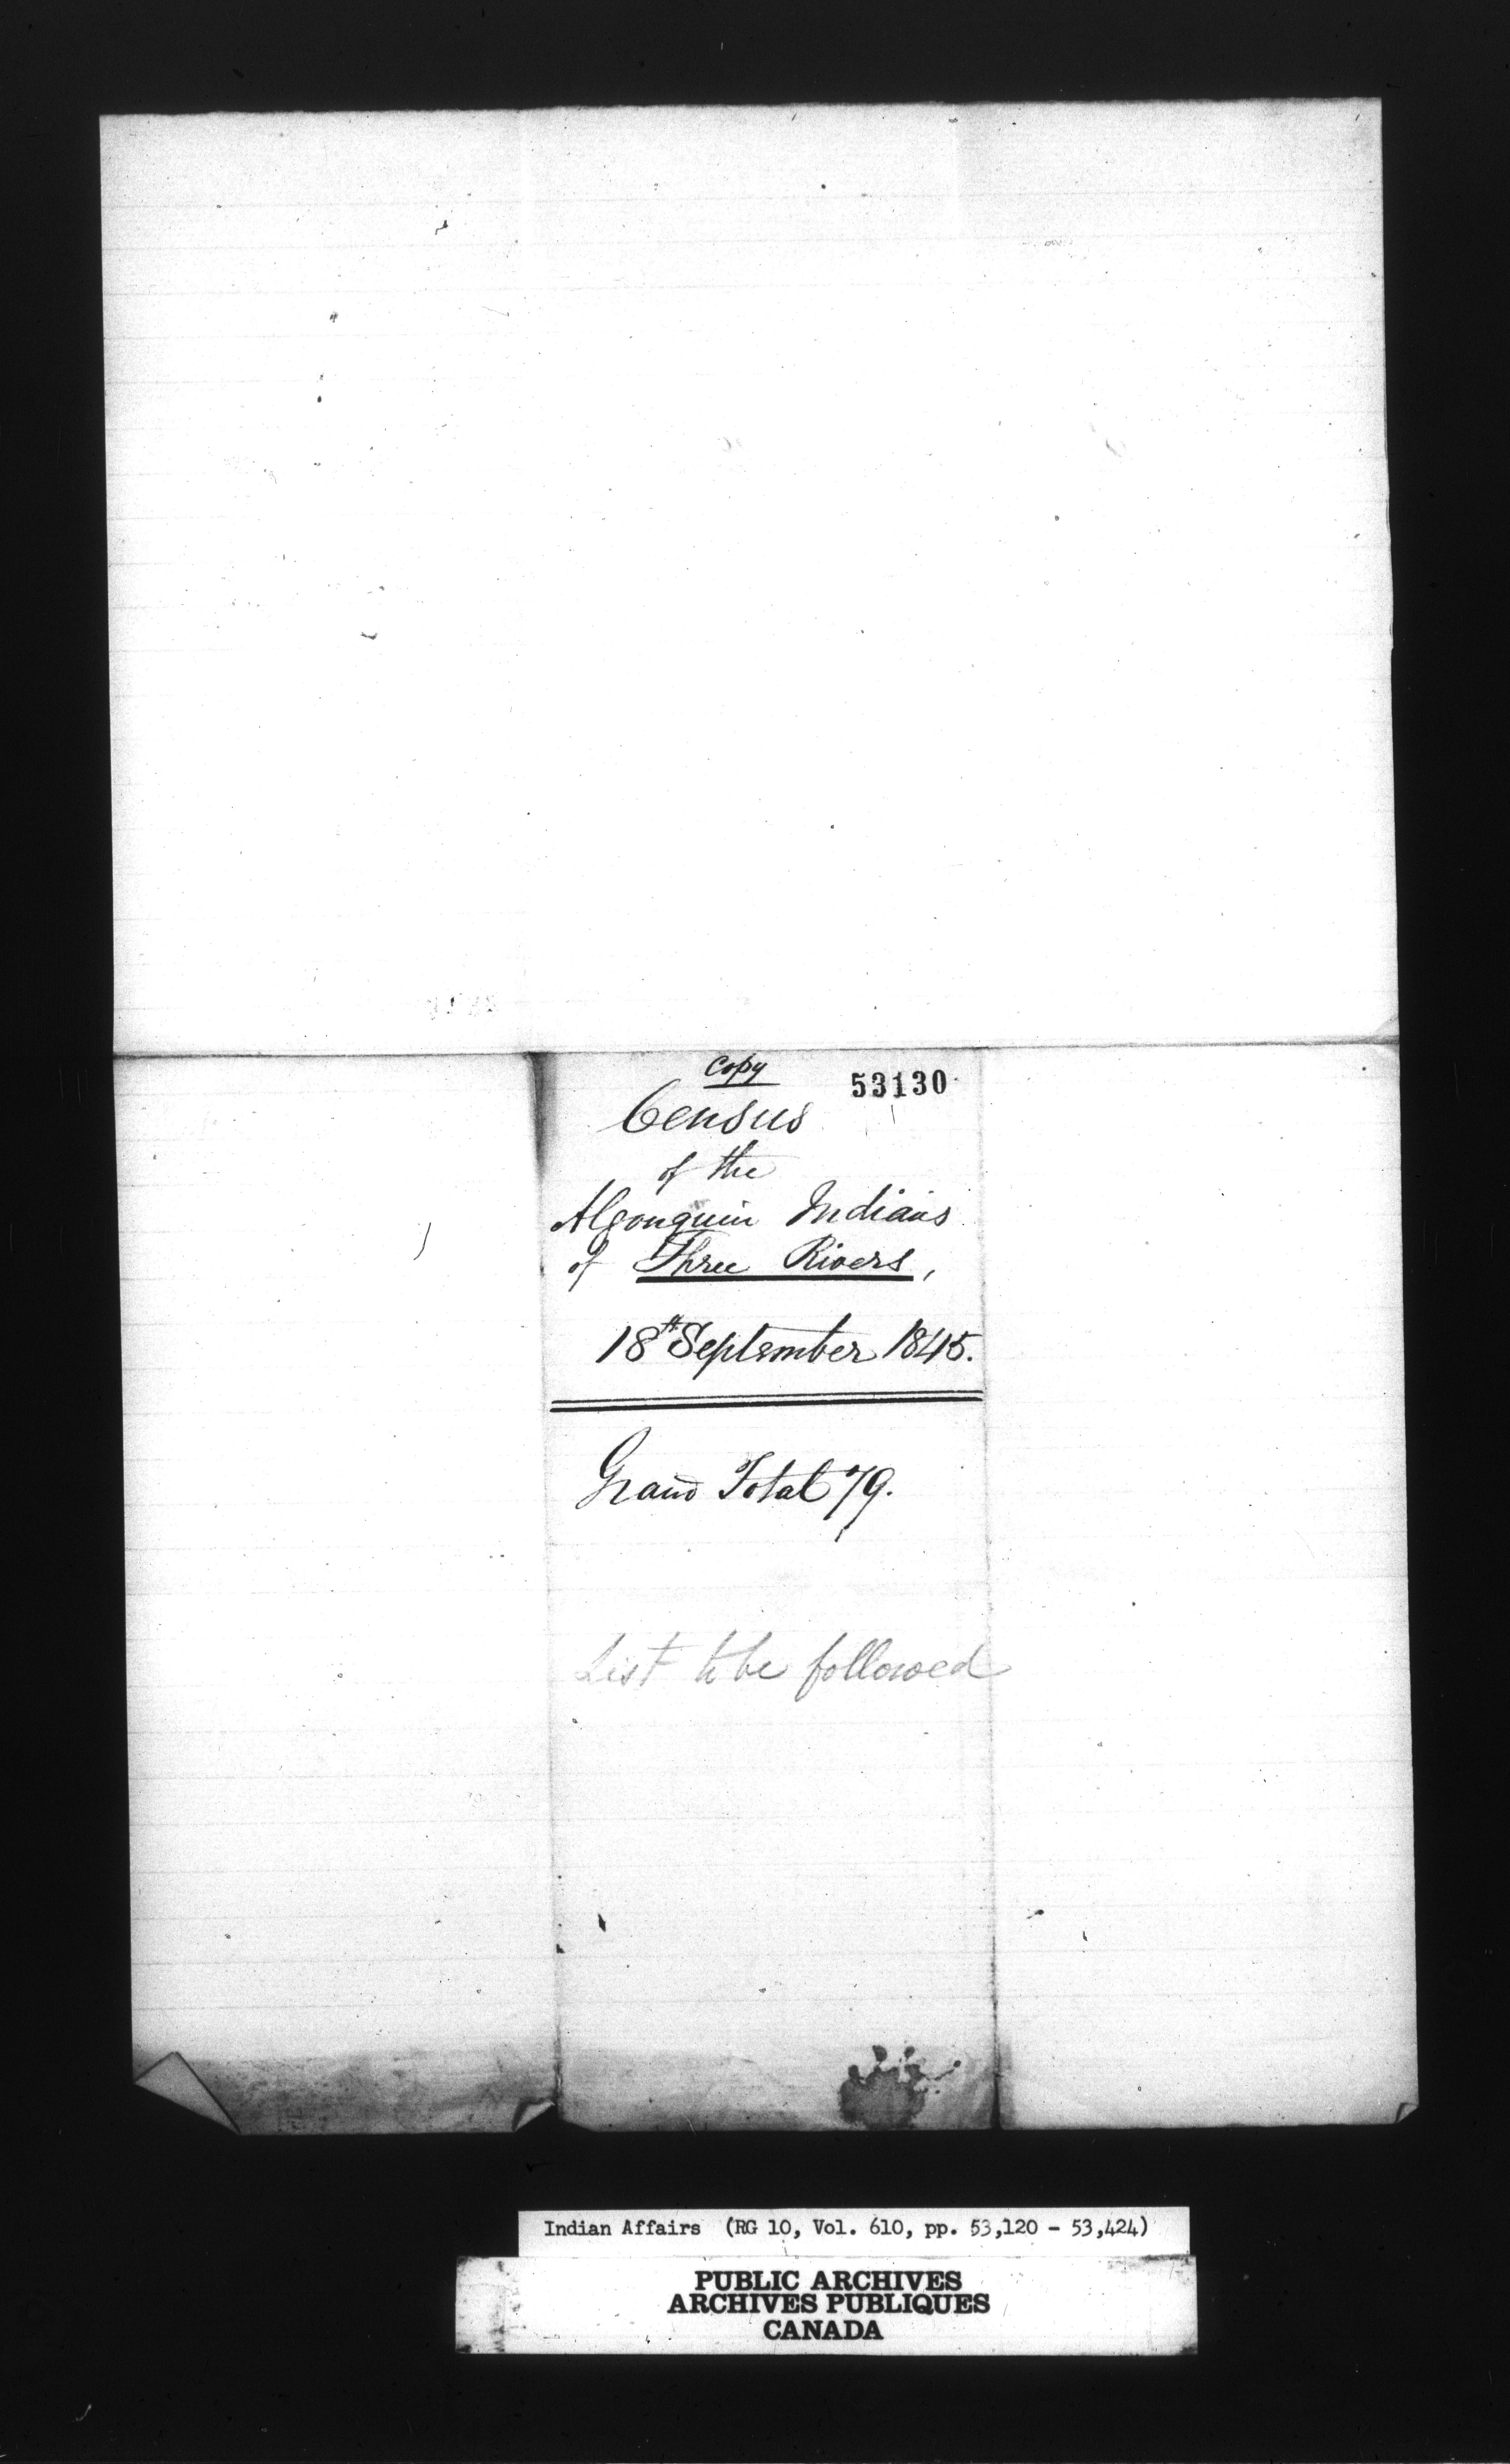 Copy
53130
Census
of the
Algonquin Indians
of Three Rivers,
18th September 1845.
Grand Total 79.
List to be followed
Indian Affairs (RG 10, Vol. 610, pp. 53,120 - 53,424)
PUBLIC ARCHIVES
ARCHIVES PUBLIQUES
CANADA